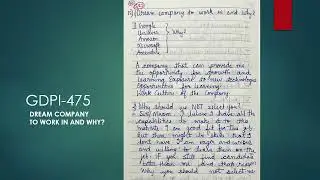 GDPI-475
DREAM COMPANY
TO WORK IN AND WHY?
Dream company to work in and why?
Google
Unilever
Amazon
Microsoft
Accenture
Why?
A company that can provide me
the opportunity for growth and
learning, Exposure to new technologies
Opportunities for learning.
Work Culture of the Company.
Why should we NOT select you?
Sir/Ma'am I believe I have all the
capabilities to make it to this
I am good fit for this job.
But there might be skills that I
don't have. I am eager and curious
and willing to learn them on the
job. If you still find candidate
better than me
Why you should not select me